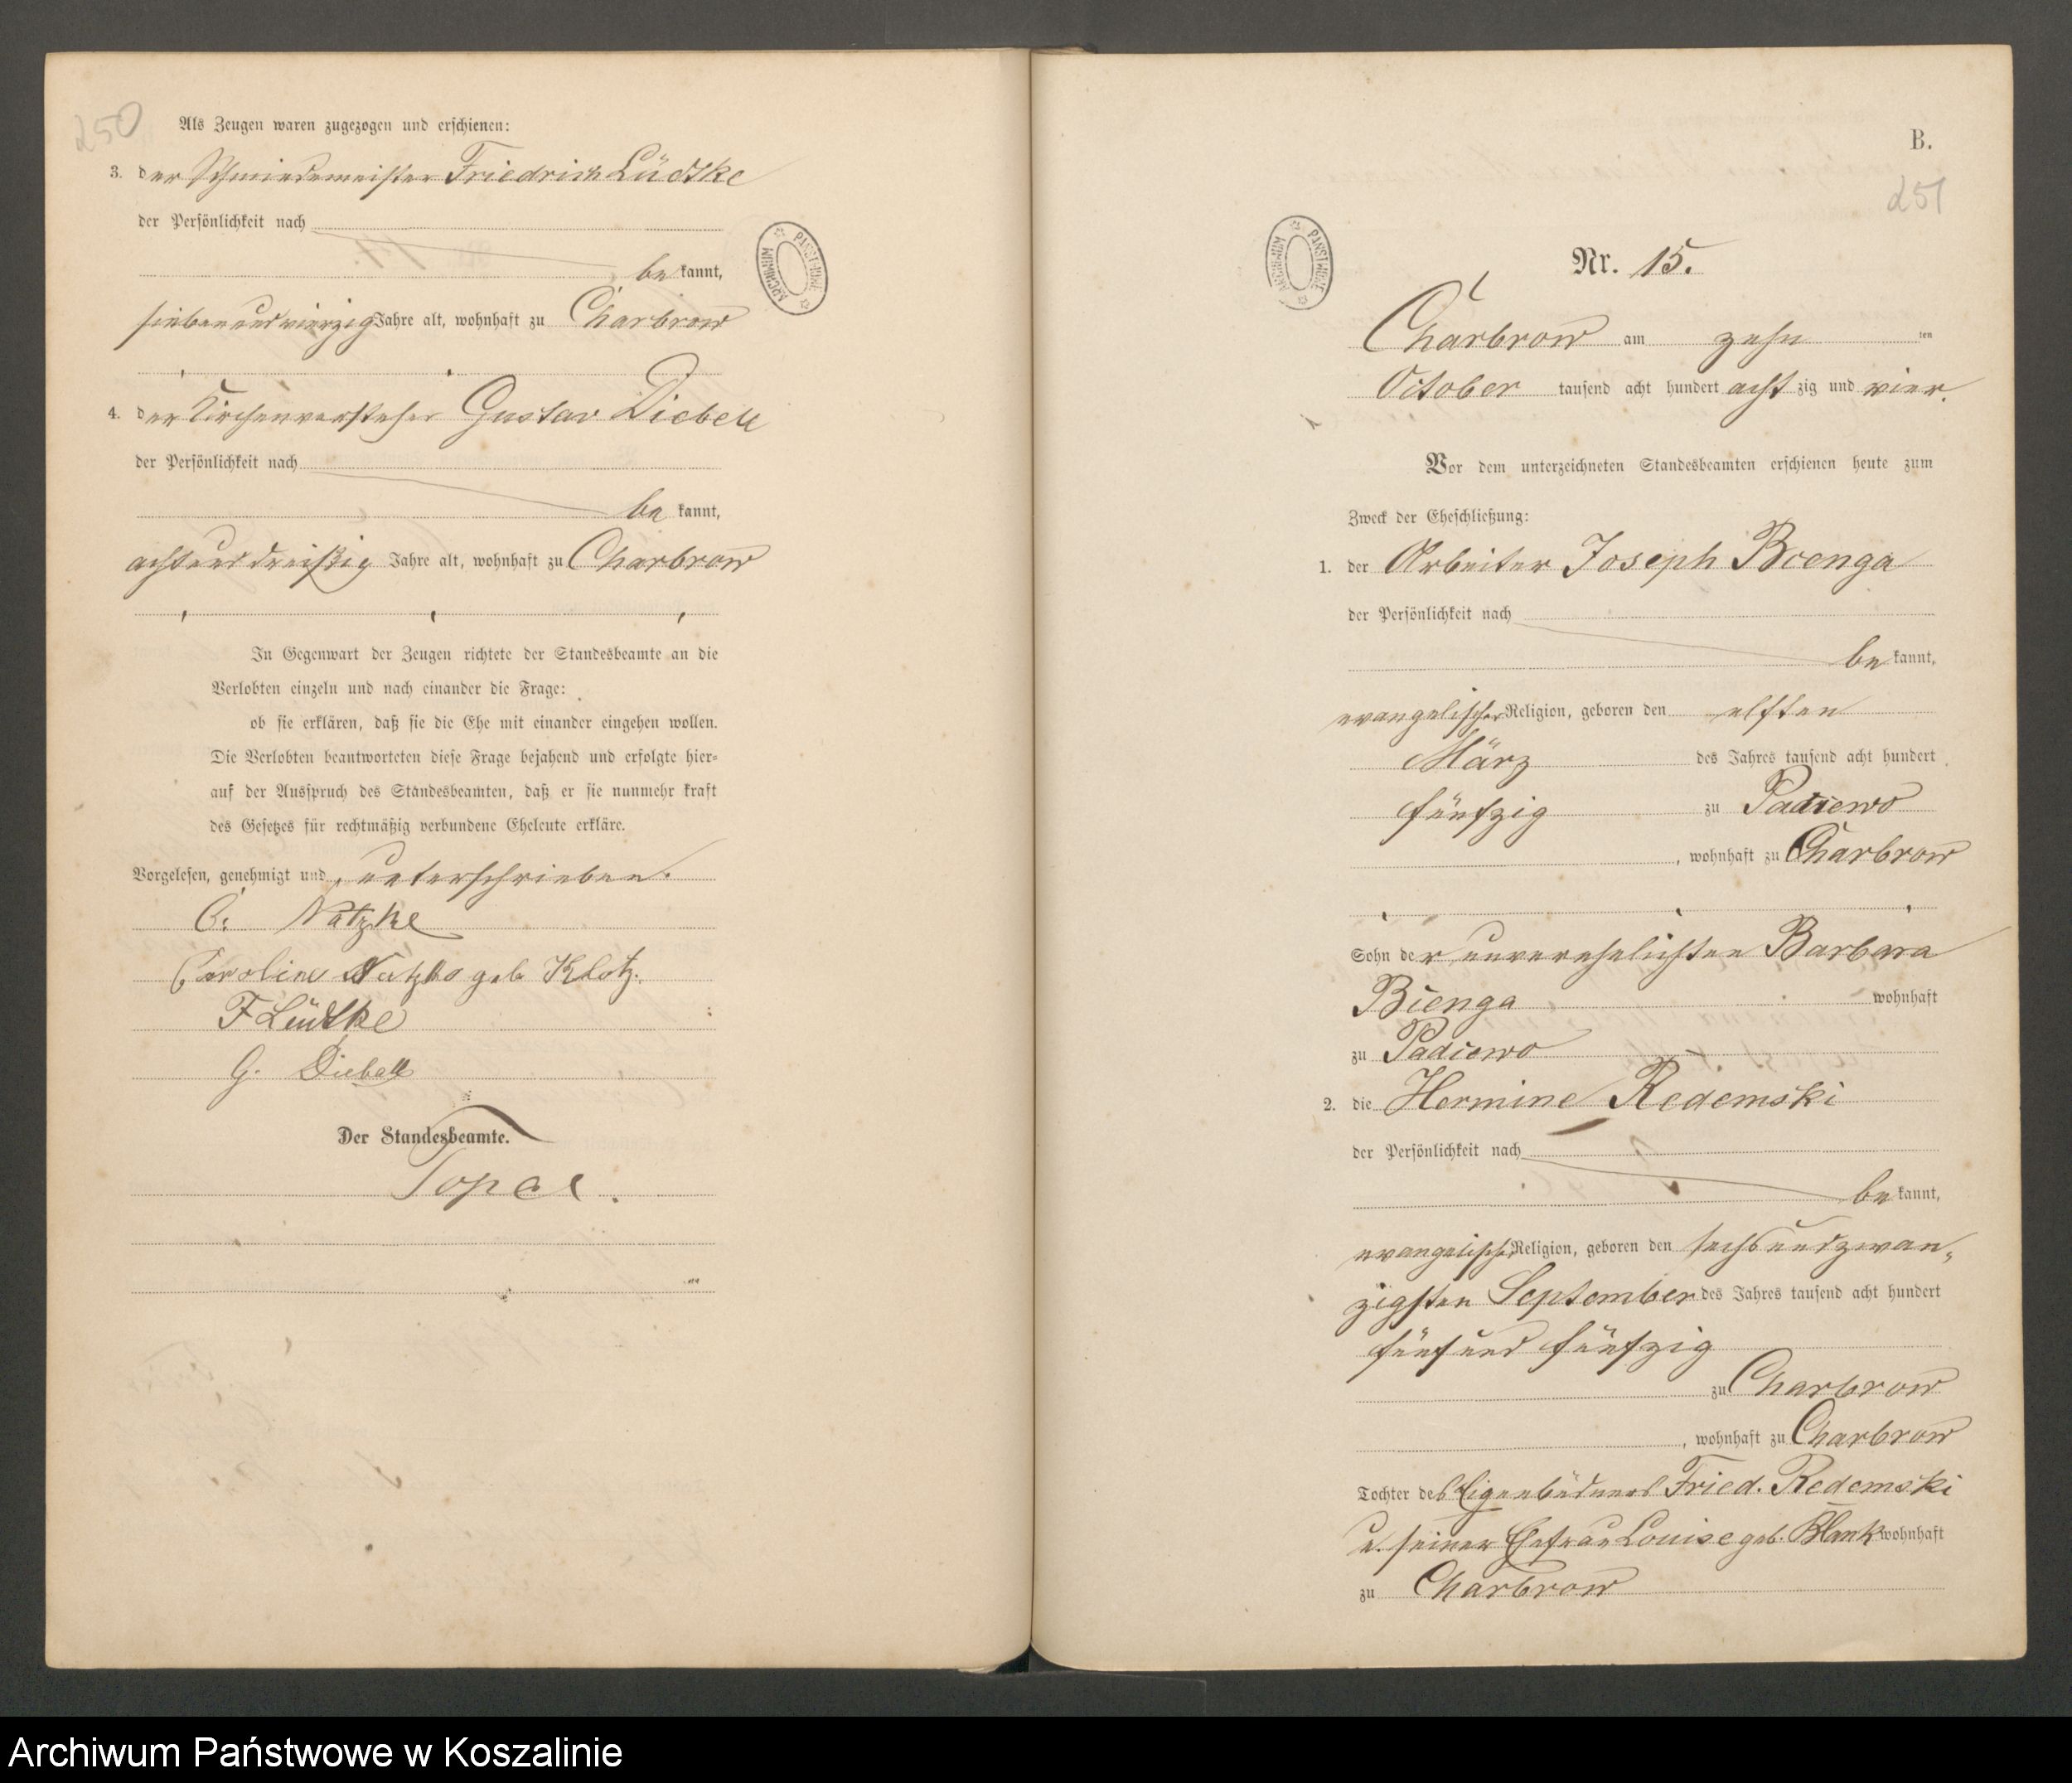 250
Als Zeugen waren zugezogen und erschienen:
3. der Schmiedemeister Friedrich Lüdtke
der Persönlichkeit nach
be kannt,
siebenundvierzig Jahre alt, wohnhaft zu Charbrow
4. der Kirchenvorsteher Gustav Dieball
der Persönlichkeit nach
be kannt,
achtunddreißig Jahre alt, wohnhaft zu Charbrow
In Gegenwart der Zeugen richtete der Standesbeamte an die
Verlobten einzeln und nach einander die Frage:
ob sie erklären, daß sie die Ehe mit einander eingehen wollen.
Die Verlobten beantworteten diese Frage bejahend und erfolgte hier-
auf der Ausspruch des Standesbeamten, daß er sie nunmehr kraft
des Gesetzes für rechtmäßig verbundene Eheleute erkläre.
Vorgelesen, genehmigt und unterschrieben.
Natzke
Caroline Natzke geb Klotz.
F Lüdtke
G. Dieball
Der Standesbeamte.
ARCHIWUM PAŃSTWOWE
B.
251
ARCHIWUM PAŃSTWOWE
Nr. 15.
Charbrow am zehn ten
October tausend acht hundert acht zig und vier.
Vor dem unterzeichneten Standesbeamten erschienen heute zum
Zweck der Eheschließung:
1. der Arbeiter Joseph Bienga
der Persönlichkeit nach
be kannt,
evangelischer Religion, geboren den elften
März des Jahres tausend acht hundert
fünfzig zu Padiewo
, wohnhaft zu Charbrow
Sohn der unverehelichten Barbara
Bienga wohnhaft
zu Padiewo
2. die Hermine Redemski
der Persönlichkeit nach
be kannt,
evangelischer Religion, geboren den sechsundzwan-
zigsten September des Jahres tausend acht hundert
fünfundfünfzig
zu Charbrow
, wohnhaft zu Charbrow
Tochter des Eigenbüdners Fried. Redemski
u. seiner Ehefrau Louise geb. Blank wohnhaft
zu Charbrow
Archiwum Państwowe w Koszalinie